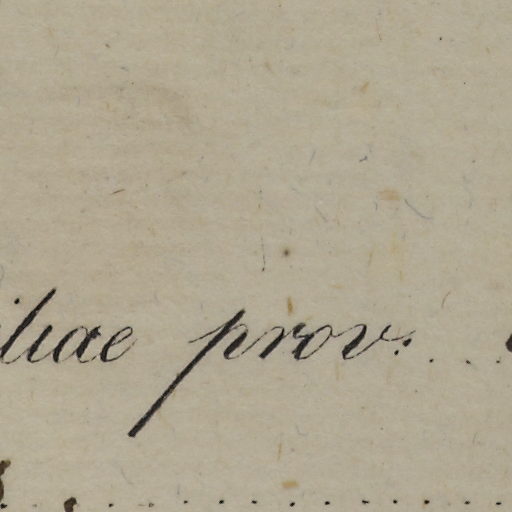 iliae prov. . . .